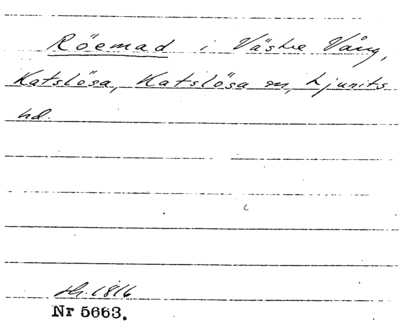 Röemad i Västra Vång,
Katslösa, Katslösa sn, Ljunits
hd.
sk. 1816
Nr 5663.